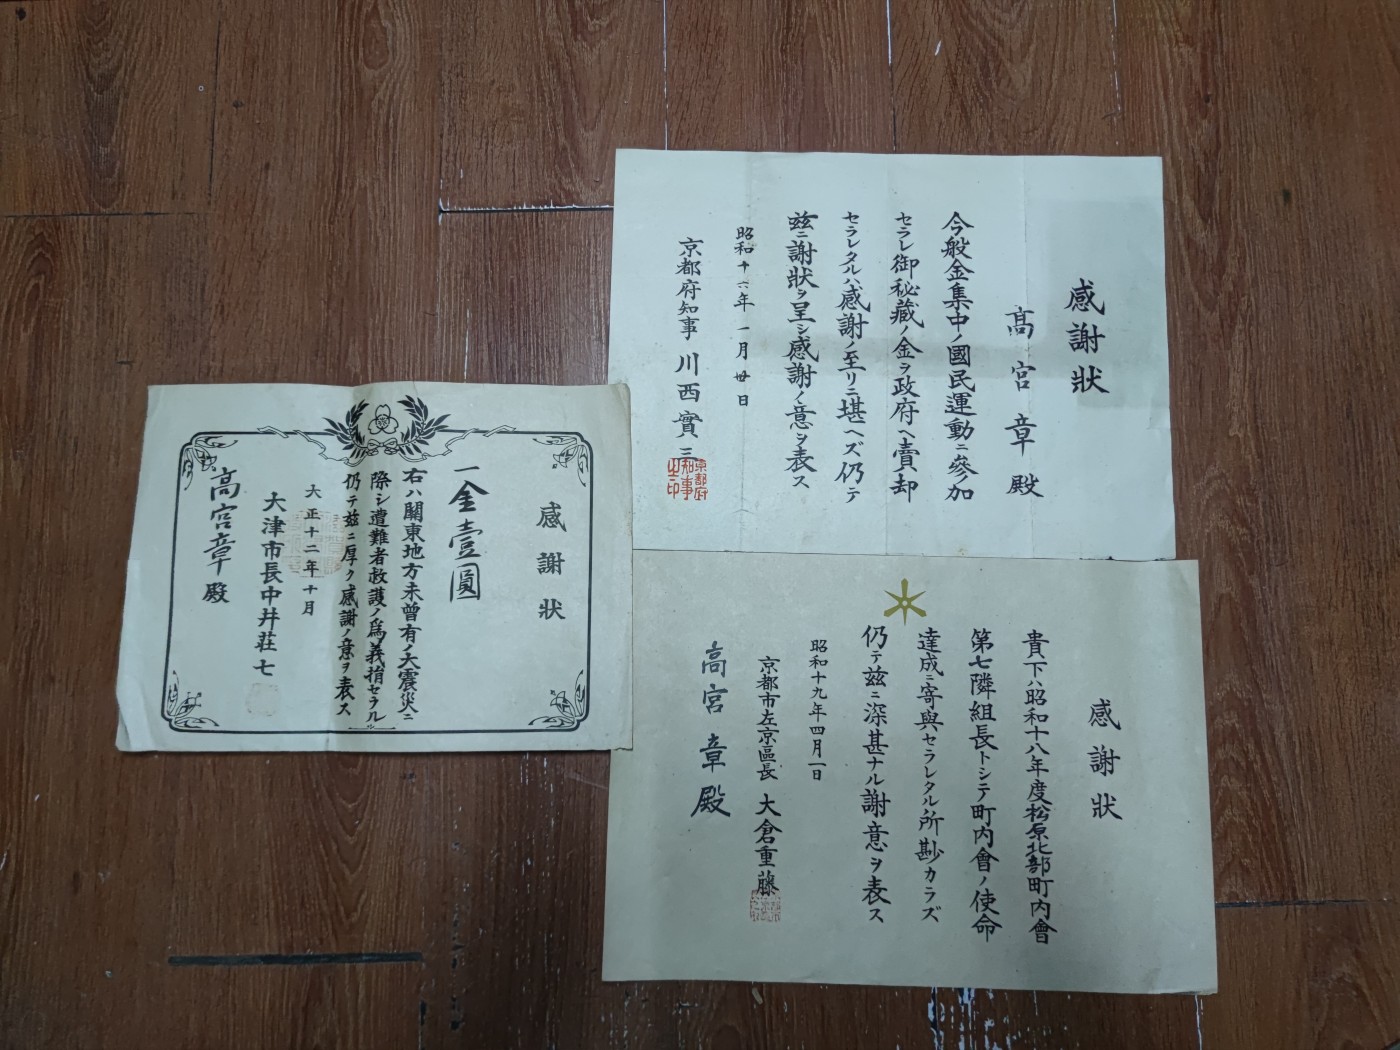 感謝狀
高宮章殿
今般金集中ノ國民運動ニ參加
セラレ御秘藏ノ金ヲ政府ヘ賣却
セラレタルハ感謝ノ至リニ堪ヘズ仍テ
玆ニ謝狀ヲ呈シ感謝ノ意ヲ表ス
昭和十六年一月廿日
京都府知事 川西實三
京都府知事之印
感謝狀
一金壹圓
右ハ關東地方未曾有ノ大震災ニ
際シ遭難者救護ノ爲メ義捐セラル
仍テ玆ニ厚ク感謝ノ意ヲ表ス
大正十二年十月
大津市長中井荘七
高宮章殿
感謝狀
貴下ハ昭和十八年度松原北部町內會
第七隣組長トシテ町內會ノ使命
達成ニ寄與セラレタル所尠カラズ
仍テ玆ニ深甚ナル謝意ヲ表ス
昭和十九年四月一日
京都市左京區長 大倉重藤
高宮章殿